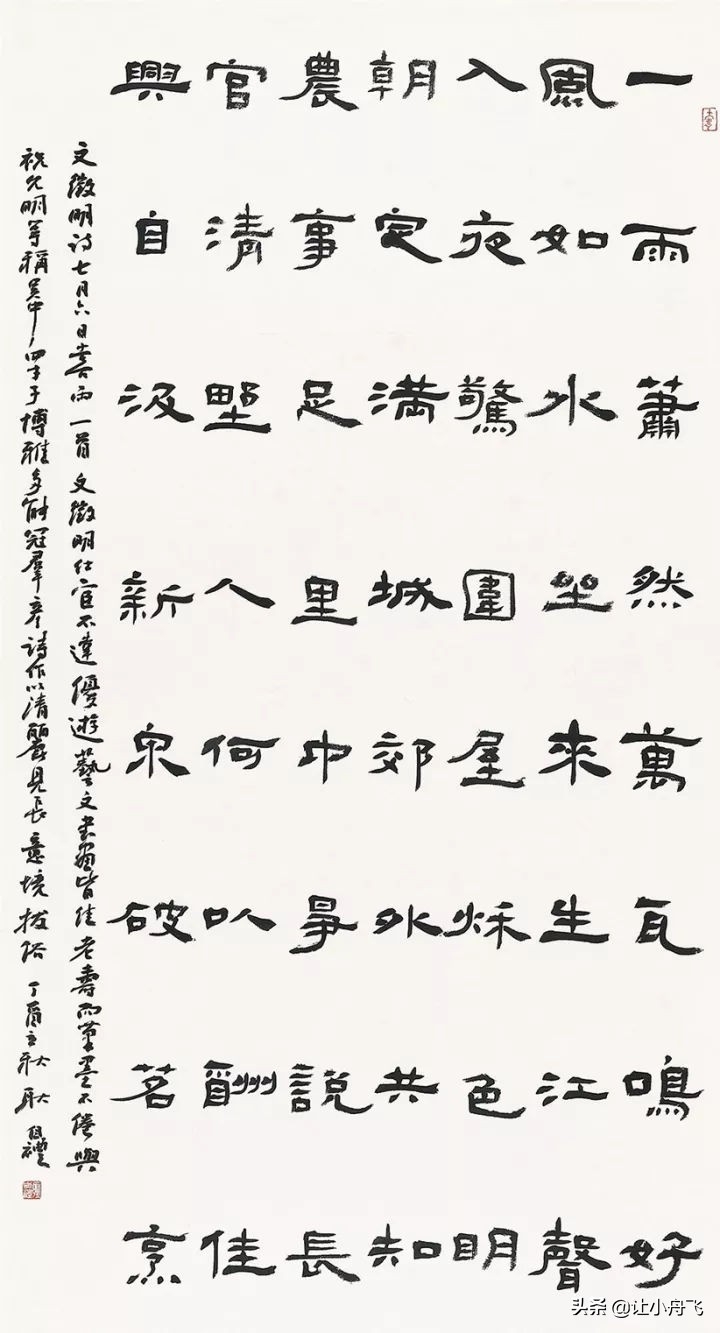 一雨蕭然萬瓦鳴好
風如水坐來生江聲
入夜驚圍屋秌色明
朝定滿城郊外共知
農事足里中爭說長
官清野人何以酬佳
興自汲新泉破茗烹
文徵明詩七月六日喜雨一首文徵明仕宦不達優遊藝文書畫皆佳老壽而筆墨不倦與
祝允明等稱吳中四才子博雅多能冠羣彥詩作以清麗見長意境拔俗 丁酉立秋 耿自禮
头条 @让小舟飞